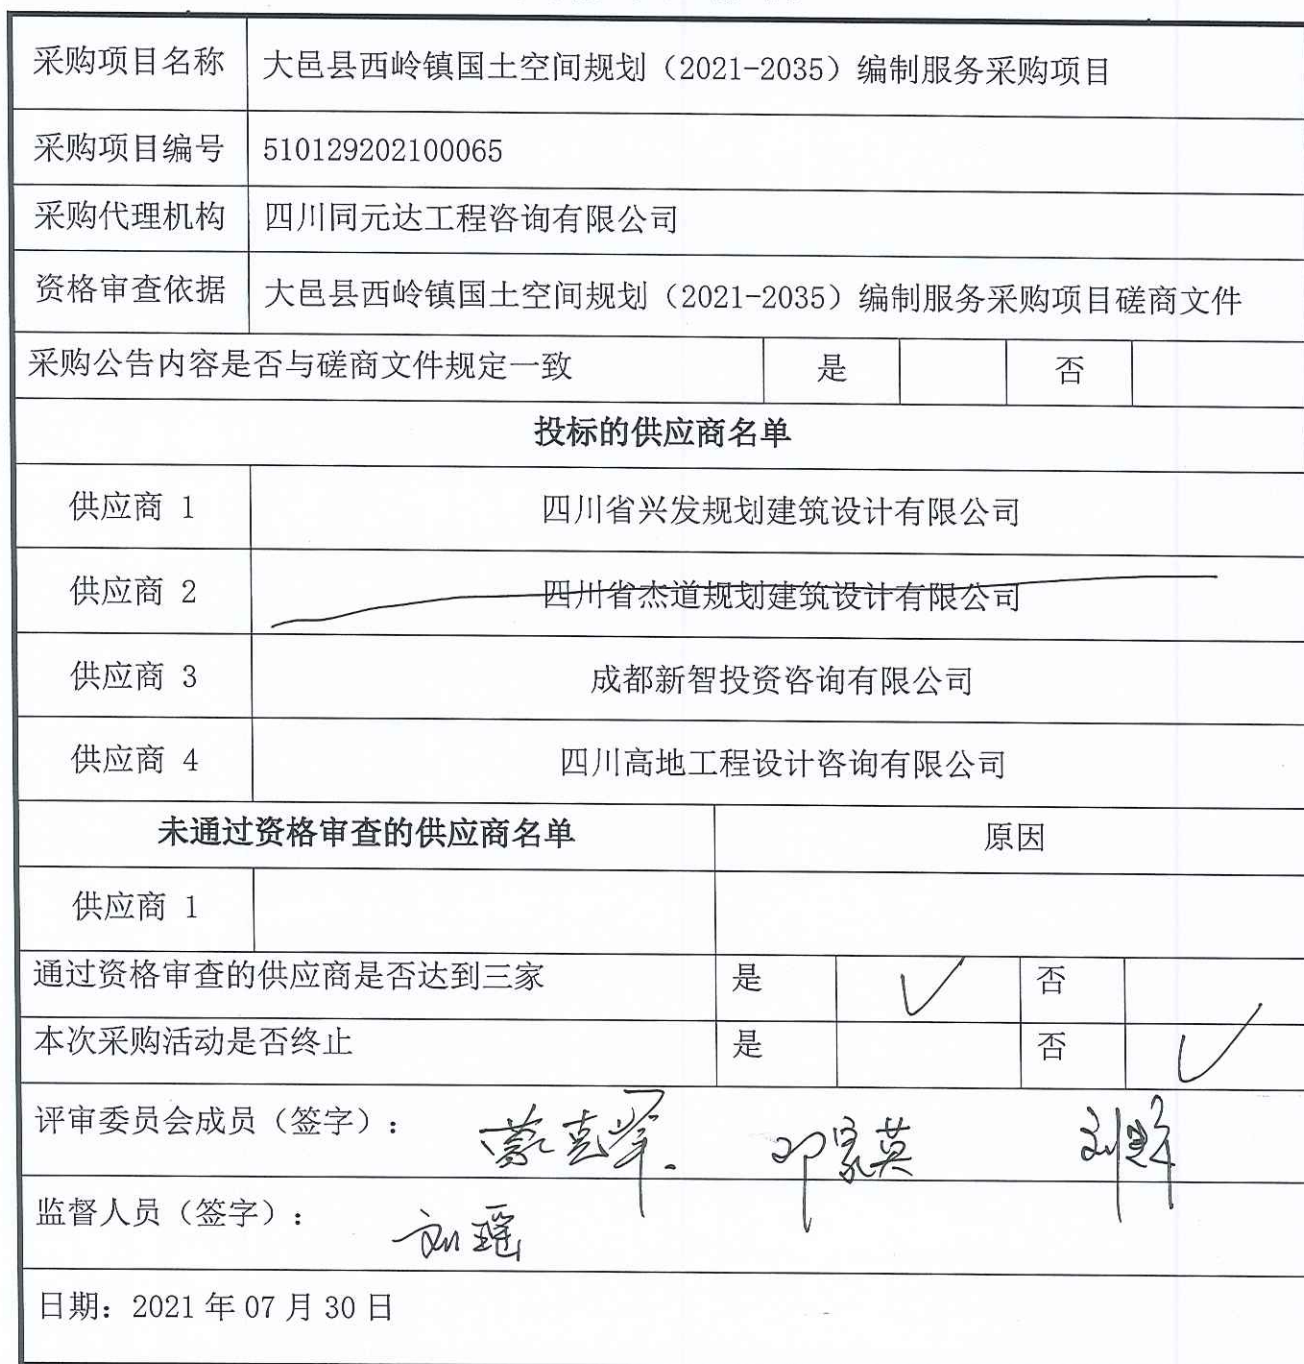 采购项目名称 大邑县西岭镇国土空间规划（2021-2035）编制服务采购项目
采购项目编号 510129202100065
采购代理机构 四川同元达工程咨询有限公司
资格审查依据 大邑县西岭镇国土空间规划（2021-2035）编制服务采购项目磋商文件
采购公告内容是否与磋商文件规定一致 是 否
投标的供应商名单
供应商 1 四川省兴发规划建筑设计有限公司
供应商 2 四川省杰道规划建筑设计有限公司
供应商 3 成都新智投资咨询有限公司
供应商 4 四川高地工程设计咨询有限公司
未通过资格审查的供应商名单 原因
供应商 1
通过资格审查的供应商是否达到三家 是 ✓ 否
本次采购活动是否终止 是 否 ✓
评审委员会成员（签字）： 邓家英
监督人员（签字）： 刘瑶
日期：2021 年 07 月 30 日